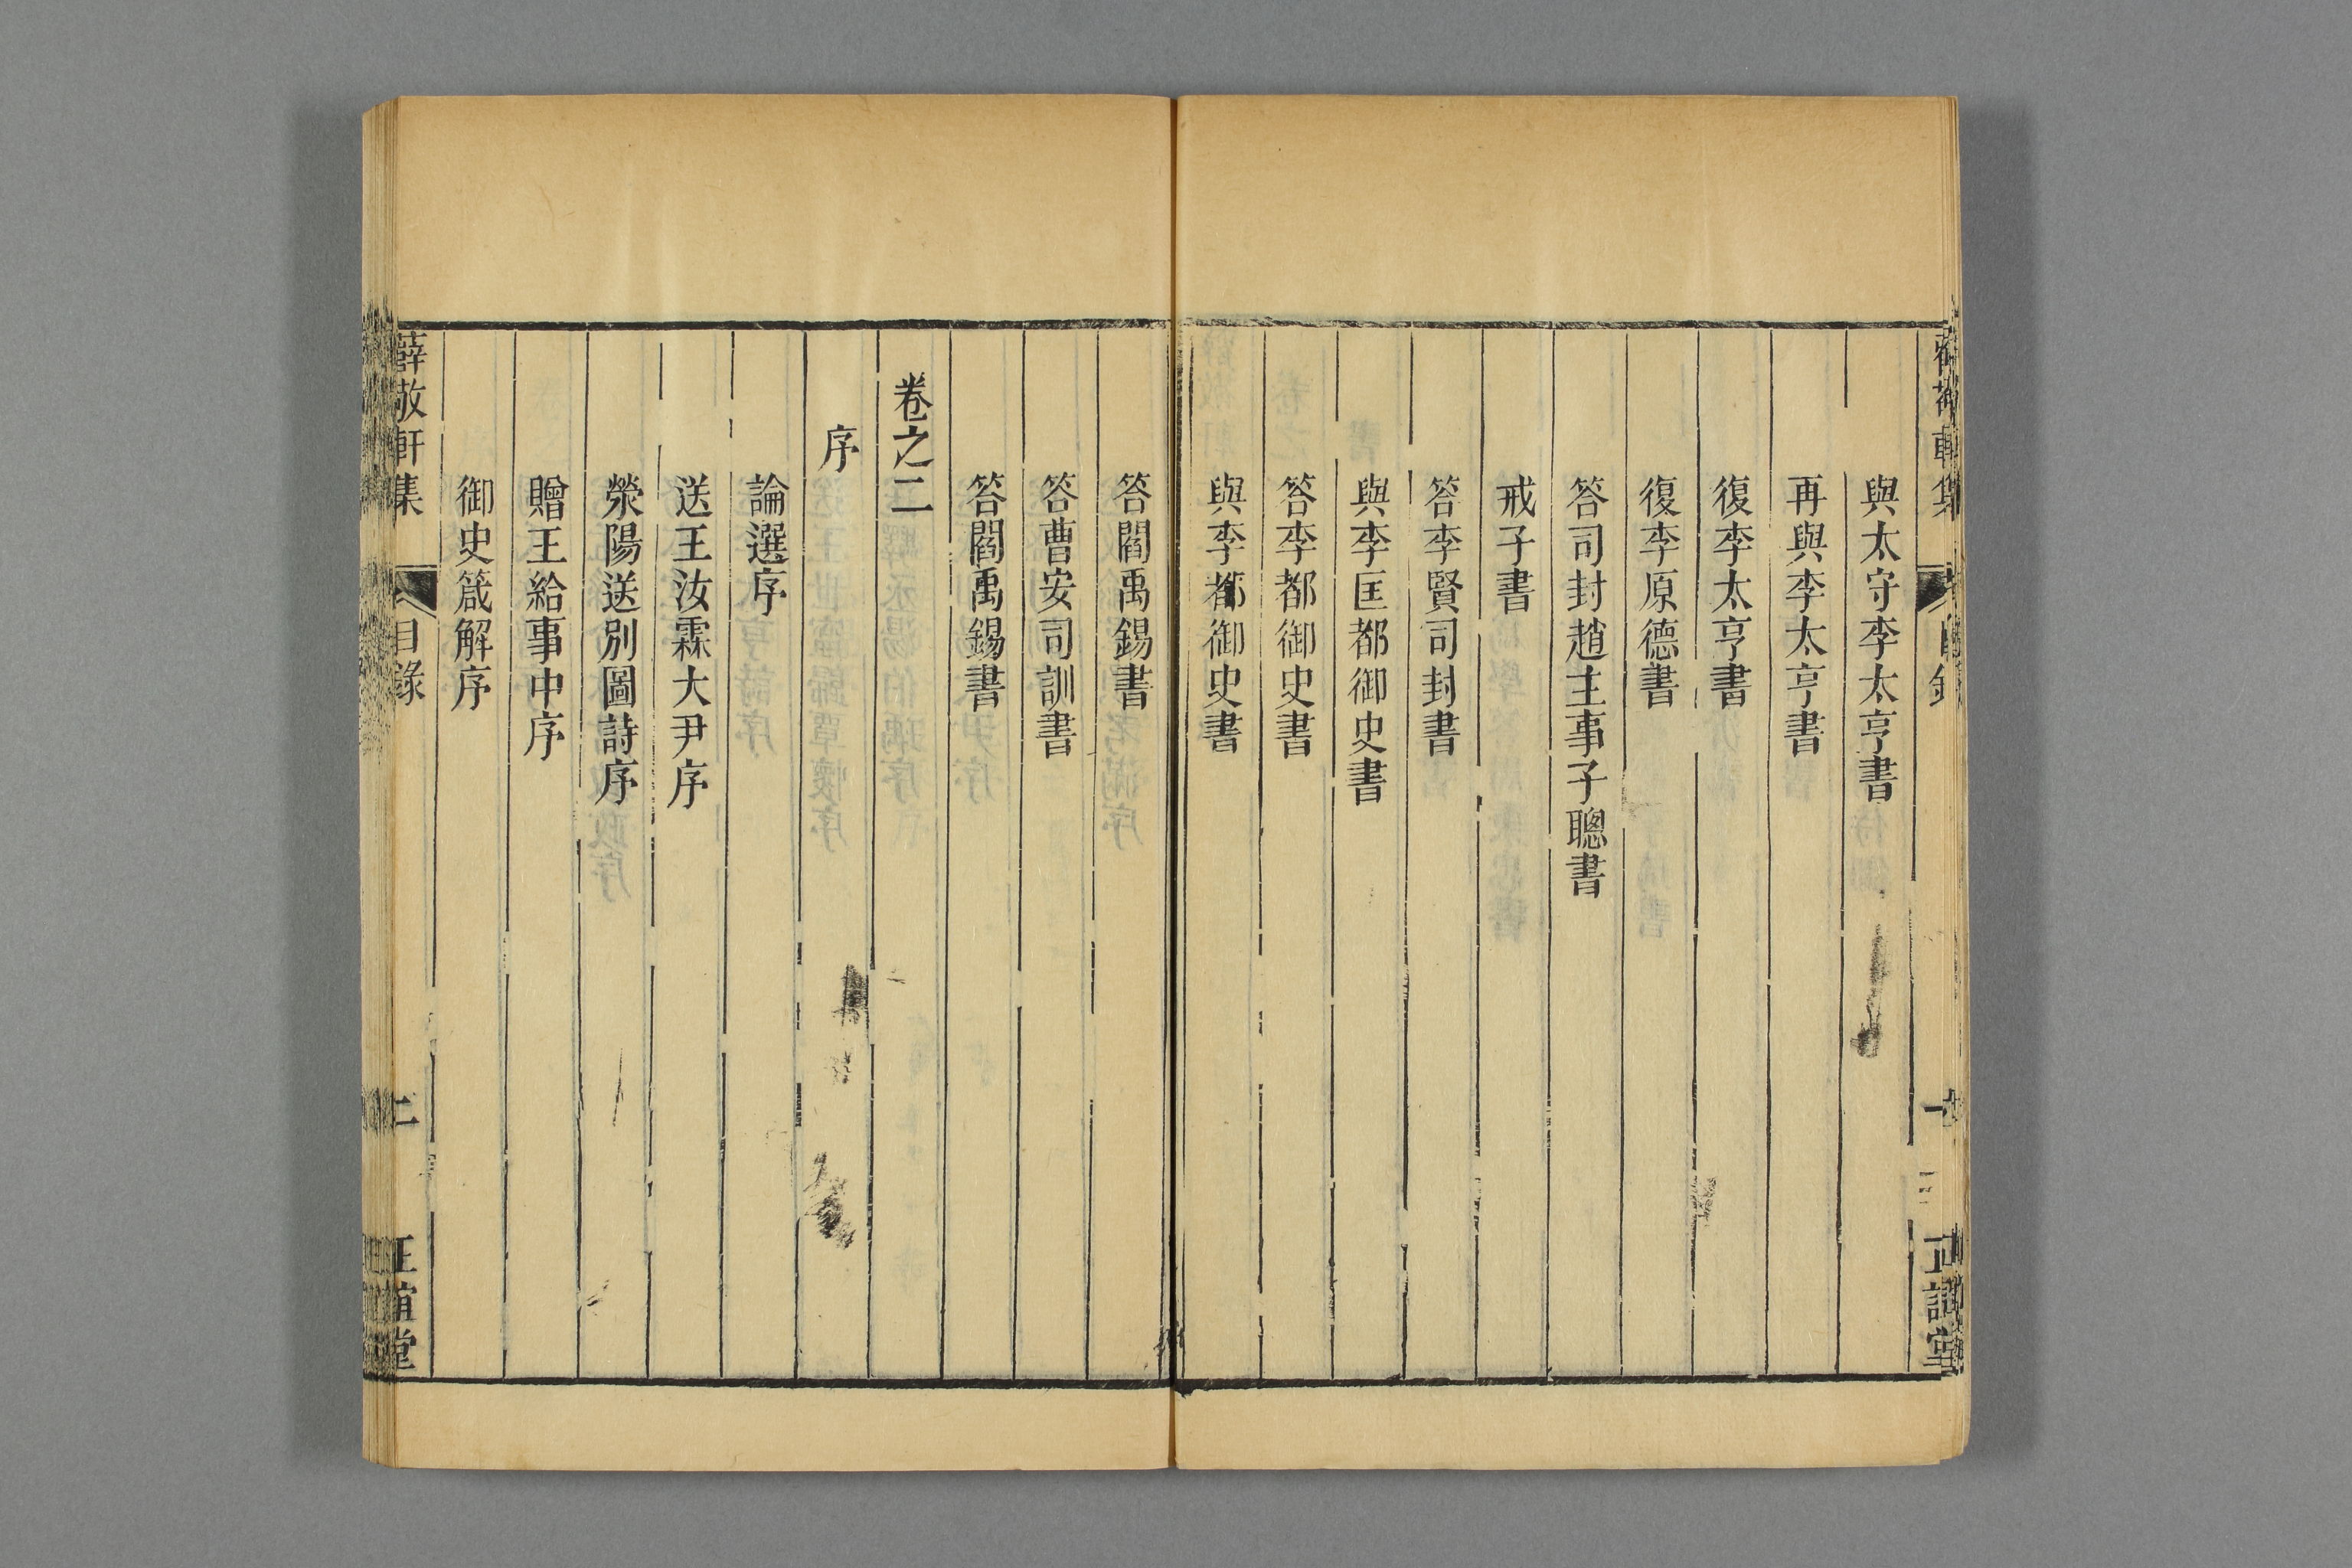 與太守李太亨書
再與李太亨書
復李太亨書
復李原德書
答司封趙主事子聰書
戒子書
答李賢司封書
與李匡都御史書
答李都御史書
與李都御史書
答閻禹錫書
答曹安司訓書
答閻禹錫書
卷之二
序
論選序
送王汝霖大尹序
滎陽送別圖詩序
贈王給事中序
御史箴解序
薛敬軒集 目錄 二 正誼堂